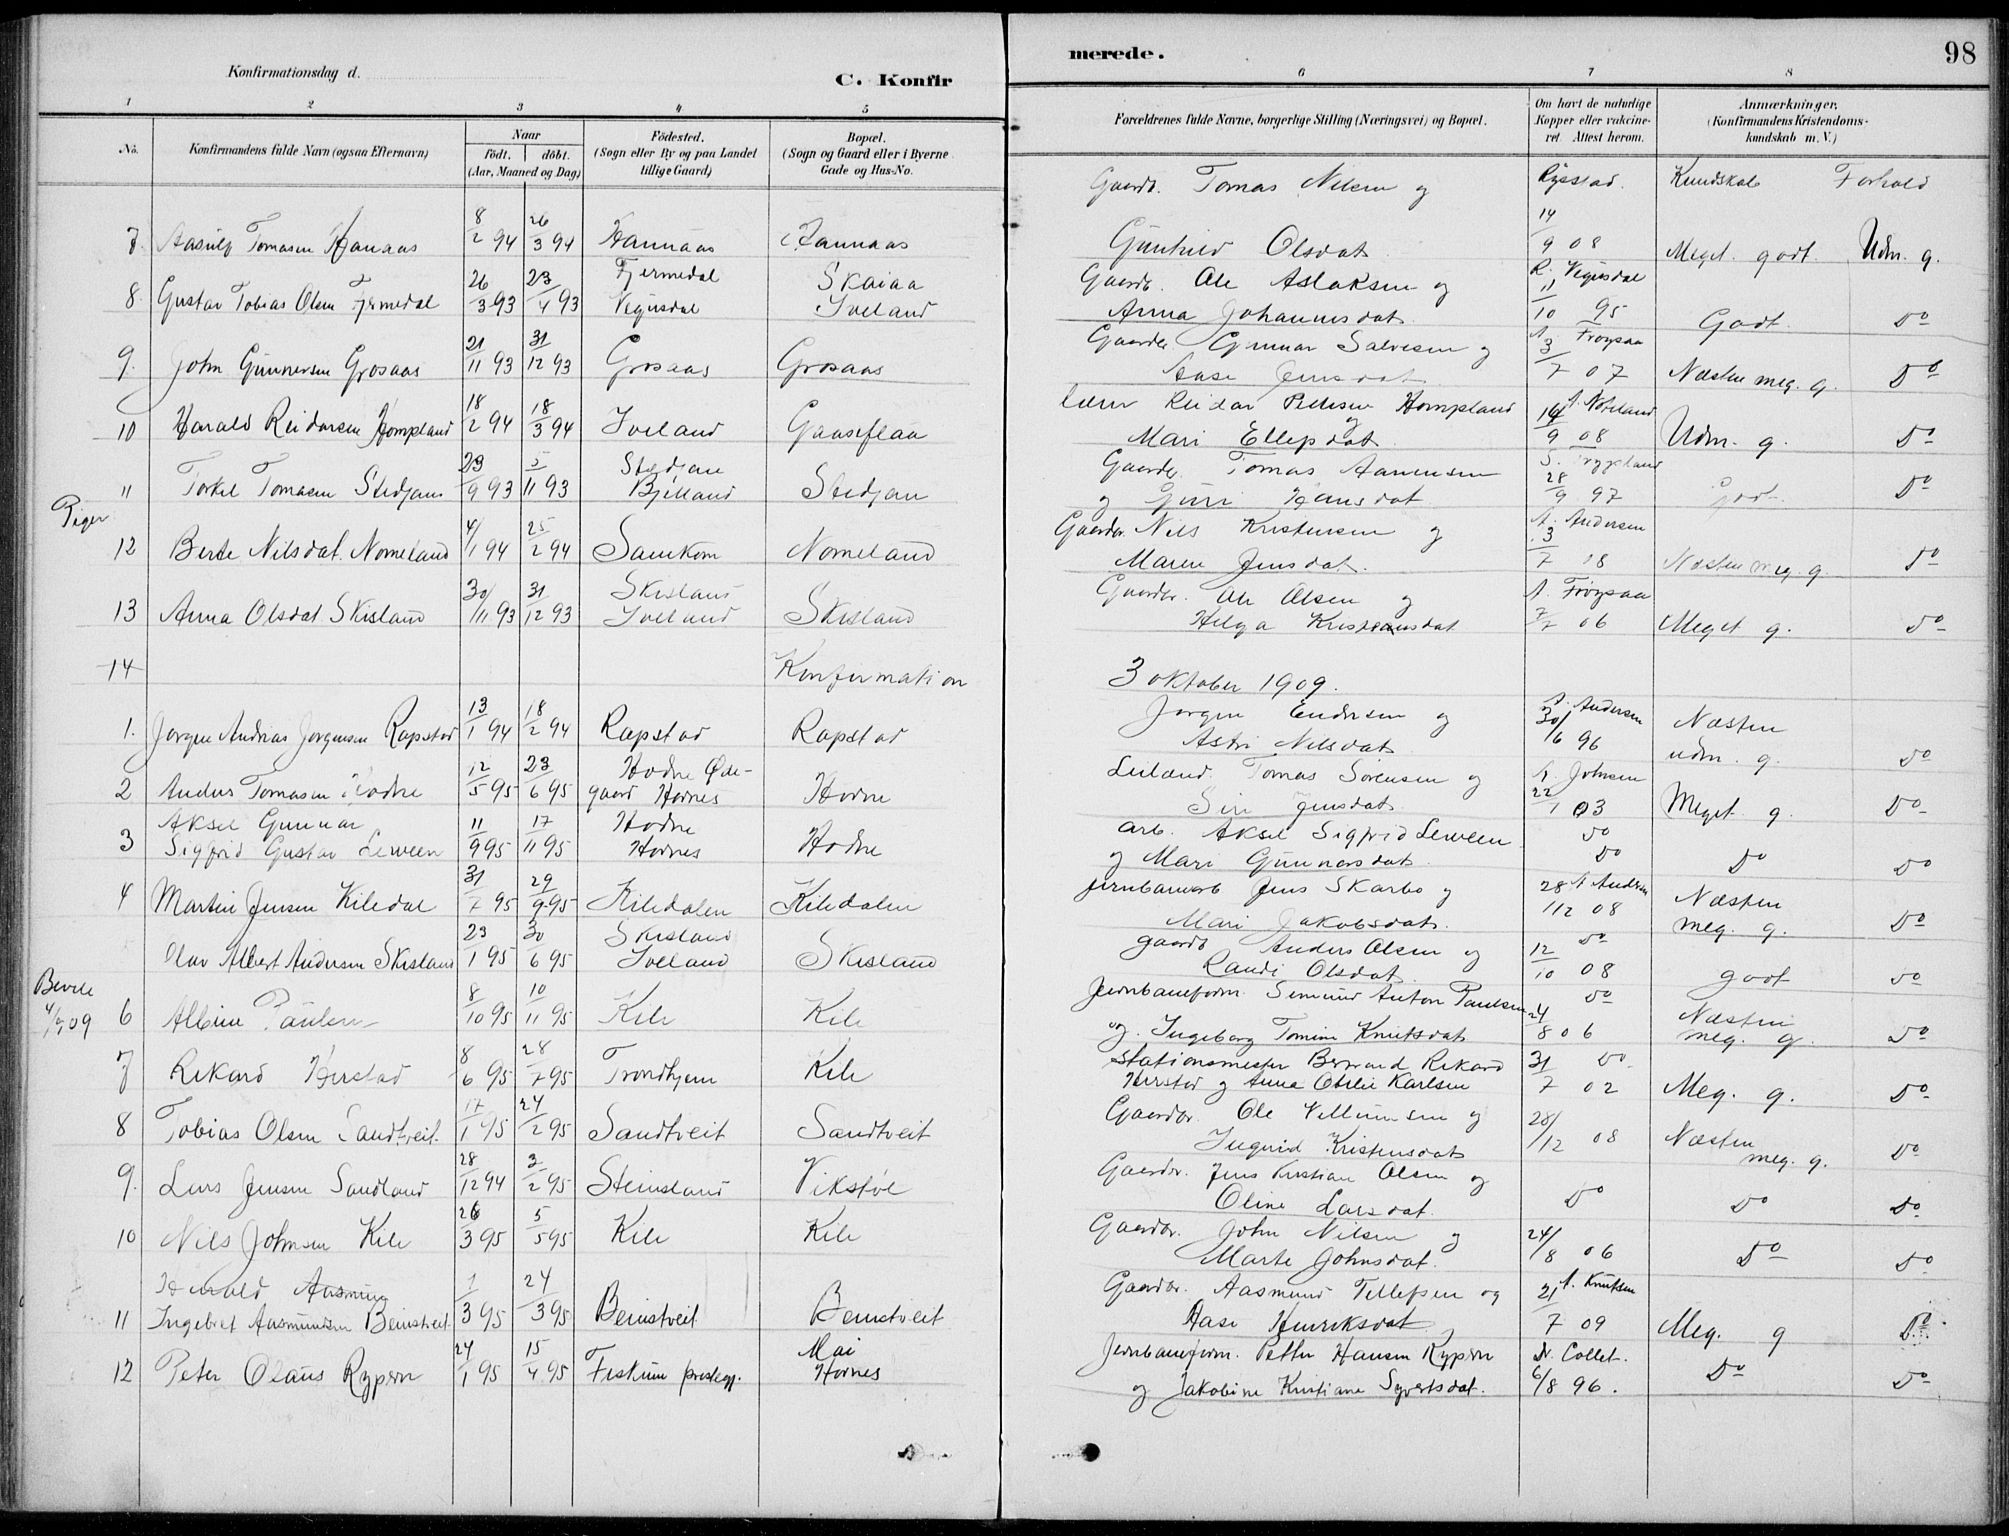 Konfirmationsdag d.
C. Konfir
merede.
98
1 2 3 4 5 6 7 8
No.
Konfirmandens fulde Navn (ogsaa Efternavn)
Naar
födt. döbt.
(Aar, Maaned og Dag)
Födested.
(Sogn eller By og paa Landet tillige Gaard)
Bopæl.
(Sogn og Gaard eller i Byerne Gade og Hus-No.
Forældrenes fulde Navne, borgerlige Stilling (Næringsvei) og Bopæl.
Om havt de naturlige Kopper eller vakcineret. Attest herom.
Anmærkninger.
(Konfirmandens Kristendomskundskab m. V.)
Kundskab Forhold
7. Aasulf Tomasen 8/2 94 26/3 94 Gaardb. Tomas Nilsen og Gunhild Olsdat. Rysstad. 14/9 08 Meget godt Udm. g.
8. Gustav Tobias Olsen Fjermedal 26/3 93 23/4 93 Fjermedal Vegusdal Skaiaa Iveland Gaardb. Ole Aslaksen og Anna Johannesdat. R. Vegusdal 11/10 95 Godt Do
9. John Gunnersen Grosaas 21/11 93 31/12 93 Grosaas Grosaas Gaardbr. Gunnar Salvesen og Aase Jensdat A. Frøysaa 3/7 07 Næsten meg. g. Do
10 Harald Reidarsen Hompland 18/2 94 18/3 94 Iveland Gaaseflaa Lærer Reidar Pettersen Hompland og Mari Ellefsdat. 9 08 Udm. g. Do
11 Torkel Tomasen Stedjan 23/9 93 5/11 93 Stedjan Bjelland Stedjan Gaardbr. Tomas Aanensen og Guri Hansdat. 28/9 97 God Do
Piger
12 Berte Nilsdat. Nomeland 4/1 94 25/2 94 Samkom Nomeland Gaardbr. Nils Kristensen og Maren Jensdat. A. Andersen 3/7 08 Næsten meg. g. Do
13 Anna Olsdat. Skisland 30/11 93 31/12 93 Skisland Iveland Skisland Gaardbr. Ole Olsen og Helga Kristensdat A. Frøysaa 7/7 06 Meget g. Do
14 Konfirmation 3 oktober 1909.
1. Jørgen Andreas Jørgensen Rapstad 13/1 94 18/2 94 Rapstad Rapstad Jørgen Endresen og Astri Nilsdat. A. Andersen 30/6 96 Næsten udm. g. Do
2 Anders Tomasen Hodne 12/5 95 23/6 95 Hodne Ødegaard Hornes Hodne Leiland. Tomas Sørensen og Siri Jensdat. A. Johnsen 22/1 03 Meget g. Do
3 Aksel Gunnar Sigfrid Gustav Leween 11/9 95 17/11 95 Hodne Hornes Hodne Arb. Aksel Sigfrid Leween og Mari Gunnarsdat. Do Do Do Do
4 Martin Jensen Kiledal 31/7 95 29/9 95 Kiledalen Kiledalen Jernbanearb Jens Skarbo og Mari Jakobsdat. 28 A Andersen 112 08 Næsten meg. g. Do
Olav Albert Andersen Skisland 23/1 95 30/6 95 Skisland Iveland Skisland gaardb Anders Olsen og Randi Olsdat. 12/10 Do 08 godt Do
4/9 09 6 Albin Paulsen 8/10 95 10/11 95 Kile Kile Jernbaneform. Semund Anton Paulsen og Ingeborg Tomine Knutsdat Do 24/8 06 Næsten meg. g. Do
7 Rikard Herstad 8/6 95 28/7 95 Trondhjem Kile Stationsmester Bernard Rikard Herstad og Anna Otilie Karlsen 31/7 Do 02 Meg. g. Do
8 Tobias Olsen Sandtveit. 17/1 95 24/2 95 Sandtveit Sandtveit Gaardbr. Ole Vellumsen og Ingerid Kristensdat. 28/12 08 Næsten meg. g. Do
9. Lars Jensen Sandland 28/12 94 3/2 95 Steinsland Vikstøl Gaardbr. Jens Kristian Olsen og Oline Larsdat. Do Do Do
10 Nils Johnsen Kile 26/3 95 5/5 95 Kile Kile Gaardbr. John Nilsen og Marte Johnsdat. 24/8 06 Do Do
11 Harald Ingebret Aasmundsen Beinstveit. 1/3 95 24/3 95 Beinstveit Beinstveit Gaardbr. Aasmund Tellefsen og Aase Henriksdat A. Knutsen 21/7 09 Meg. g Do
12 Peter Olaus Rypern 24/1 95 15/4 95 Fiskum prestegj. Moi Hornes Jernbaneform. Petter Hansen Rypern og Jakobine Kristiane Syvertsdat. Dr. Collet. 6/8 96. Do Do